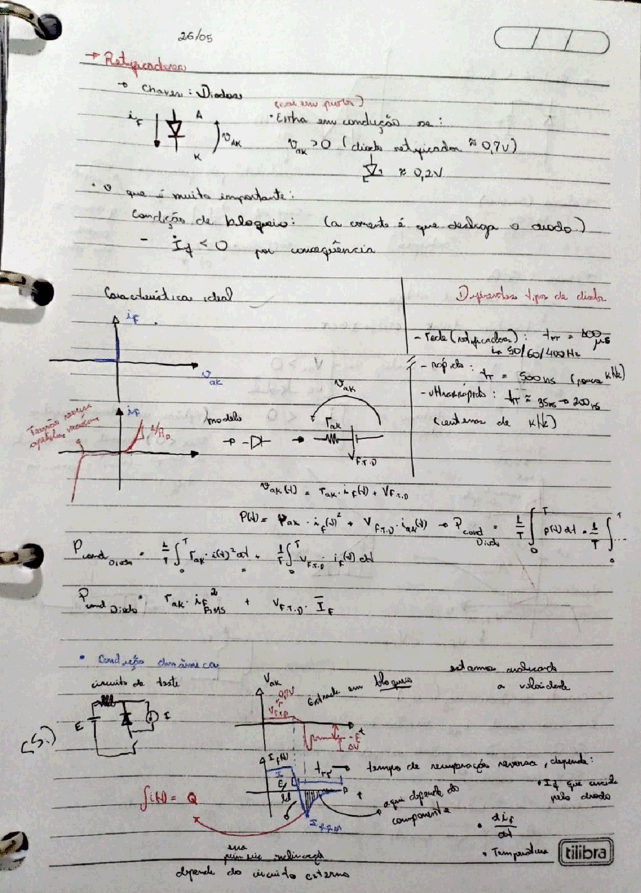 26/05
→ Retificadores
→ Chaves: Diodos
A
K
i_F
v_ak
• Entra em condução se:
v_ak > 0 (diodo retificador ≈ 0,7V)
≈ 0,2V
• O que é muito importante:
Condição de bloqueio: (a corrente é que desliga o diodo)
- i_f < 0 por consequência
Característica ideal
Diferentes tipos de diodos
i_F
v_ak
- Rede (retificadores): t_rr =
↳ 50/60/400Hz
- rápido:
t_rr = 500ns (poucos kHz)
- ultrarrápido: t_rr = 35ns → 200ns
(centenas de kHz)
i_F
modelo
v_ak
r_ak
V_F.T.O
v_ak(t) = r_ak · i_F(t) + V_F.T.O
P(t) = r_ak · i_F(t)² + V_F.T.O · i_ak(t) → P_cond Diodo = 1/T ∫₀ᵀ p(t) dt = 1/T ∫₀ᵀ ...
P_cond Diodo = 1/T ∫₀ᵀ r_ak · i(t)² dt + 1/T ∫₀ᵀ V_F.T.O · i_F(t) dt
P_cond Diodo = r_ak · i_F RMS² + V_F.T.O · I_F
• Condição dinâmica
estamos avaliando
circuito de teste
a velocidade
V_ak
0,7V
V_F.T.O
Entrando em bloqueio
E
I
-E
ΔV
I_F(t)
t_rr → tempo de recuperação reversa, depende:
• I_f que circula
pelo diodo
aqui depende do
componente
∫i(t) = Q
• di_f/dt
• Temperatura
essa
inclinação
depende do circuito externo
tilibra